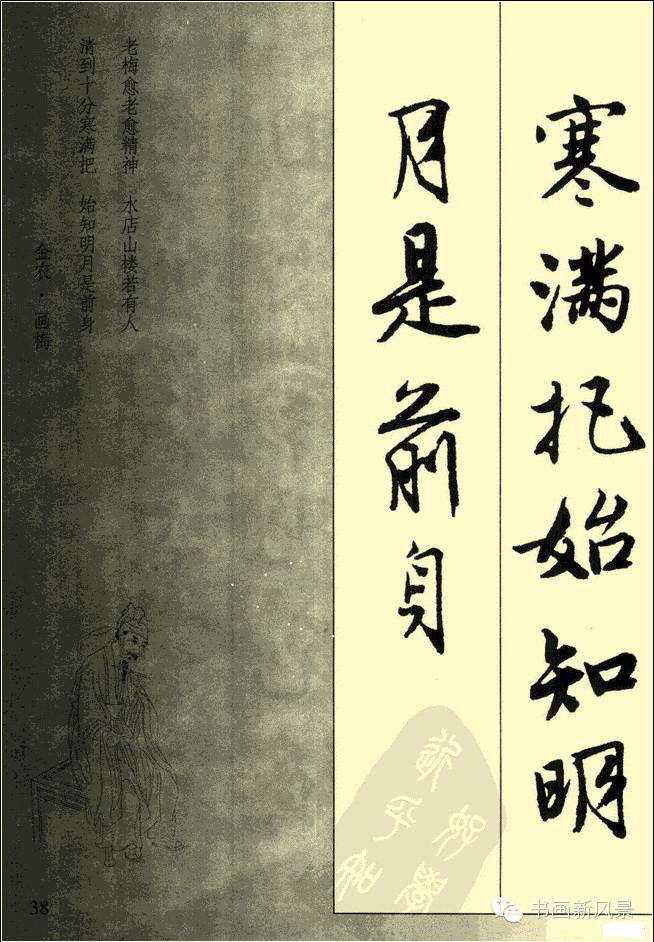 寒满把始知明
月是前身
老梅愈老愈精神 水店山楼若有人
清到十分寒满把 始知明月是前身
金农·画梅
38
书画新风景